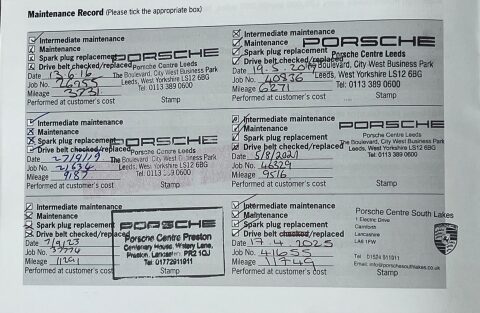 Maintenance Record (Please tick the appropriate box)
Intermediate maintenance
Maintenance
Spark plug replacement
Drive belt checked/replaced
Date 13.6.16
Job No.
Mileage
Performed at customer's cost
PORSCHE
Porsche Centre Leeds
The Boulevard, City West Business Park
Leeds, West Yorkshire LS12 6BG
Tel: 0113 389 0600
Stamp
Intermediate maintenance
Maintenance
Spark plug replacement
Drive belt checked/replaced
Date 19.5.2017
Job No. 40836
Mileage 6271
Performed at customer's cost
PORSCHE
Porsche Centre Leeds
The Boulevard, City West Business Park
Leeds, West Yorkshire LS12 6BG
Tel: 0113 389 0600
Stamp
Intermediate maintenance
Maintenance
Spark plug replacement
Drive belt checked/replaced
Date 27/9/19
Job No. 21634
Mileage 9187
Performed at customer's cost
PORSCHE
Porsche Centre Leeds
The Boulevard, City West Business Park
Leeds, West Yorkshire LS12 6BG
Tel: 0113 389 0600
Stamp
Intermediate maintenance
Maintenance
Spark plug replacement
Drive belt checked/replaced
Date 5/8/2021
Job No. 46329
Mileage 9516
Performed at customer's cost
PORSCHE
Porsche Centre Leeds
The Boulevard, City West Business Park
Leeds, West Yorkshire LS12 6BG
Tel: 0113 389 0600
Stamp
Intermediate maintenance
Maintenance
Spark plug replacement
Drive belt checked/replaced
Date 7/9/23
Job No. 37774
Mileage 11291
Performed at customer's cost
PORSCHE
Porsche Centre Preston
Centenary House, Watery Lane,
Preston, Lancashire PR2 1QJ
Tel: 01772911911
Stamp
Intermediate maintenance
Maintenance
Spark plug replacement
Drive belt checked/replaced
Date 17.4.2025
Job No. 41655
Mileage 11749
Performed at customer's cost
Porsche Centre South Lakes
1 Electric Drive
Carnforth
Lancashire
LA6 1FW
Tel 01524 911911
Email: info@porschesouthlakes.co.uk
Stamp